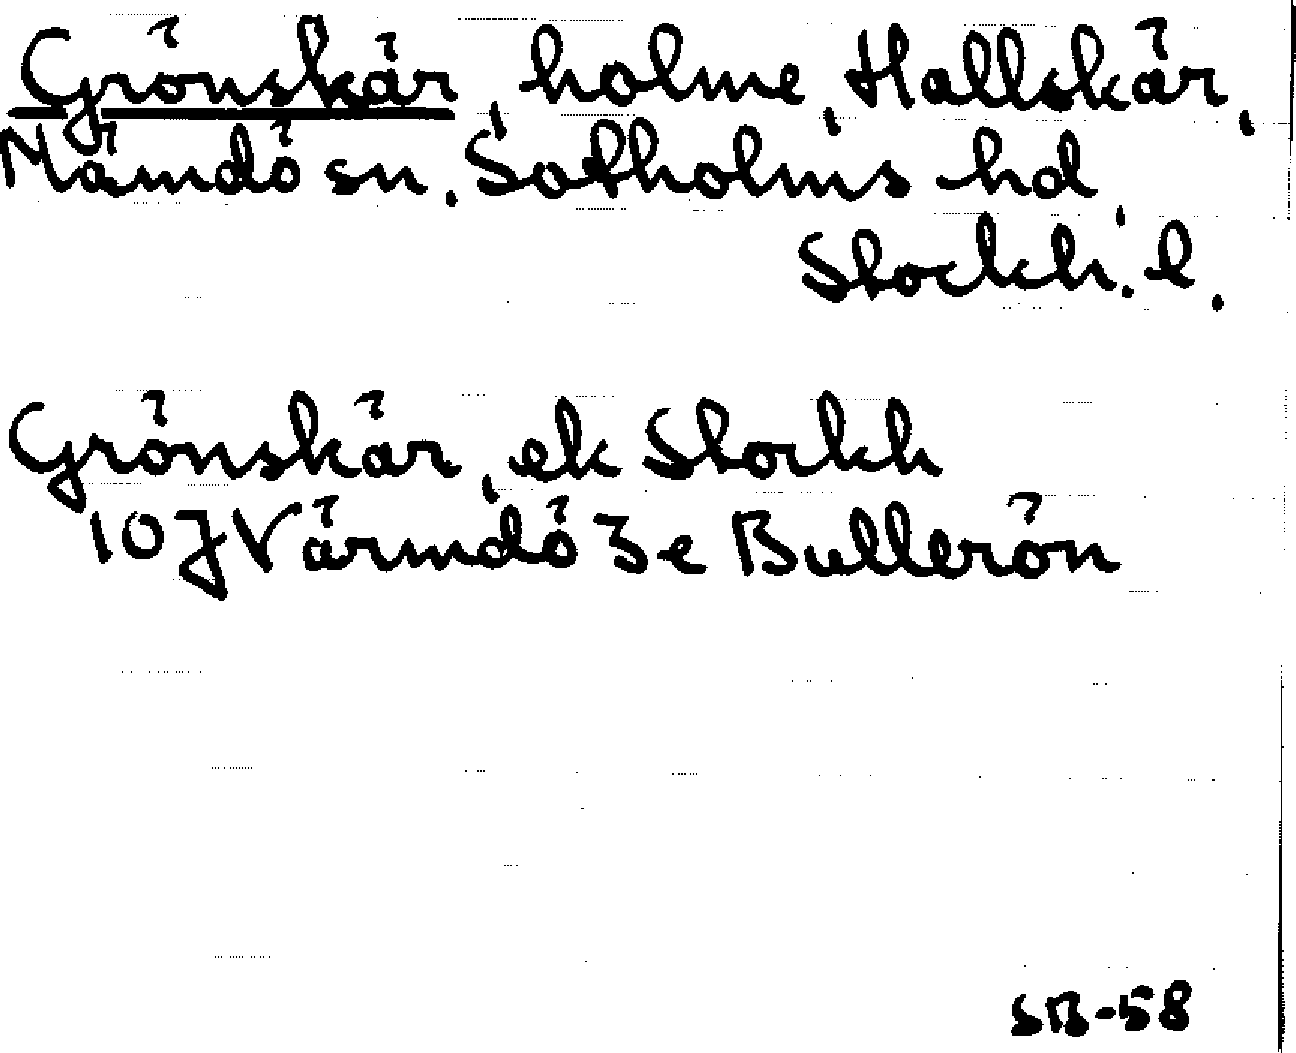 Grönskär, holme, Hallskär,
Nämdö sn, Sotholms hd,
Stockh. l.
Grönskär, ek Stockh
10J Värmdö 3e Bullerön
SB-58